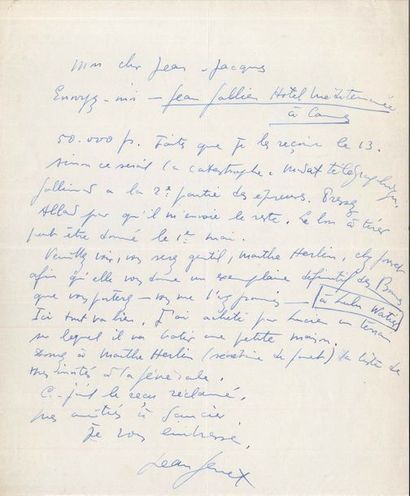 Mon cher Jean-Jacques
Envoyez-moi - Jean Gallien Hotel Mediterranée
à Cannes
50.000 frs. Faites que je les reçoive le 13.
Sinon ce serait la catastrophe. Mandat télégraphique.
Gallimard a la 2e partie des épreuves. Pressez
Allard pour qu'il m'envoie le reste. Le bon à tirer
peut être donné le 1er mai.
Veuillez voir, vous serez gentil, Marthe Herlin, chez
afin qu'elle vous donne un exemplaire définitif des Bonnes
que vous porterez - vous me l'avez promis - à Lulu Watier
Ici tout va bien. J'ai acheté pour Lucien un terrain
sur lequel il va bâtir une petite maison.
Donnez à Marthe Herlin (secrétaire de Jouvet) la liste de
mes invités à la générale.
Ci-joint le reçu réclamé.
mes amitiés à
Je vous embrasse.
Jean Genet